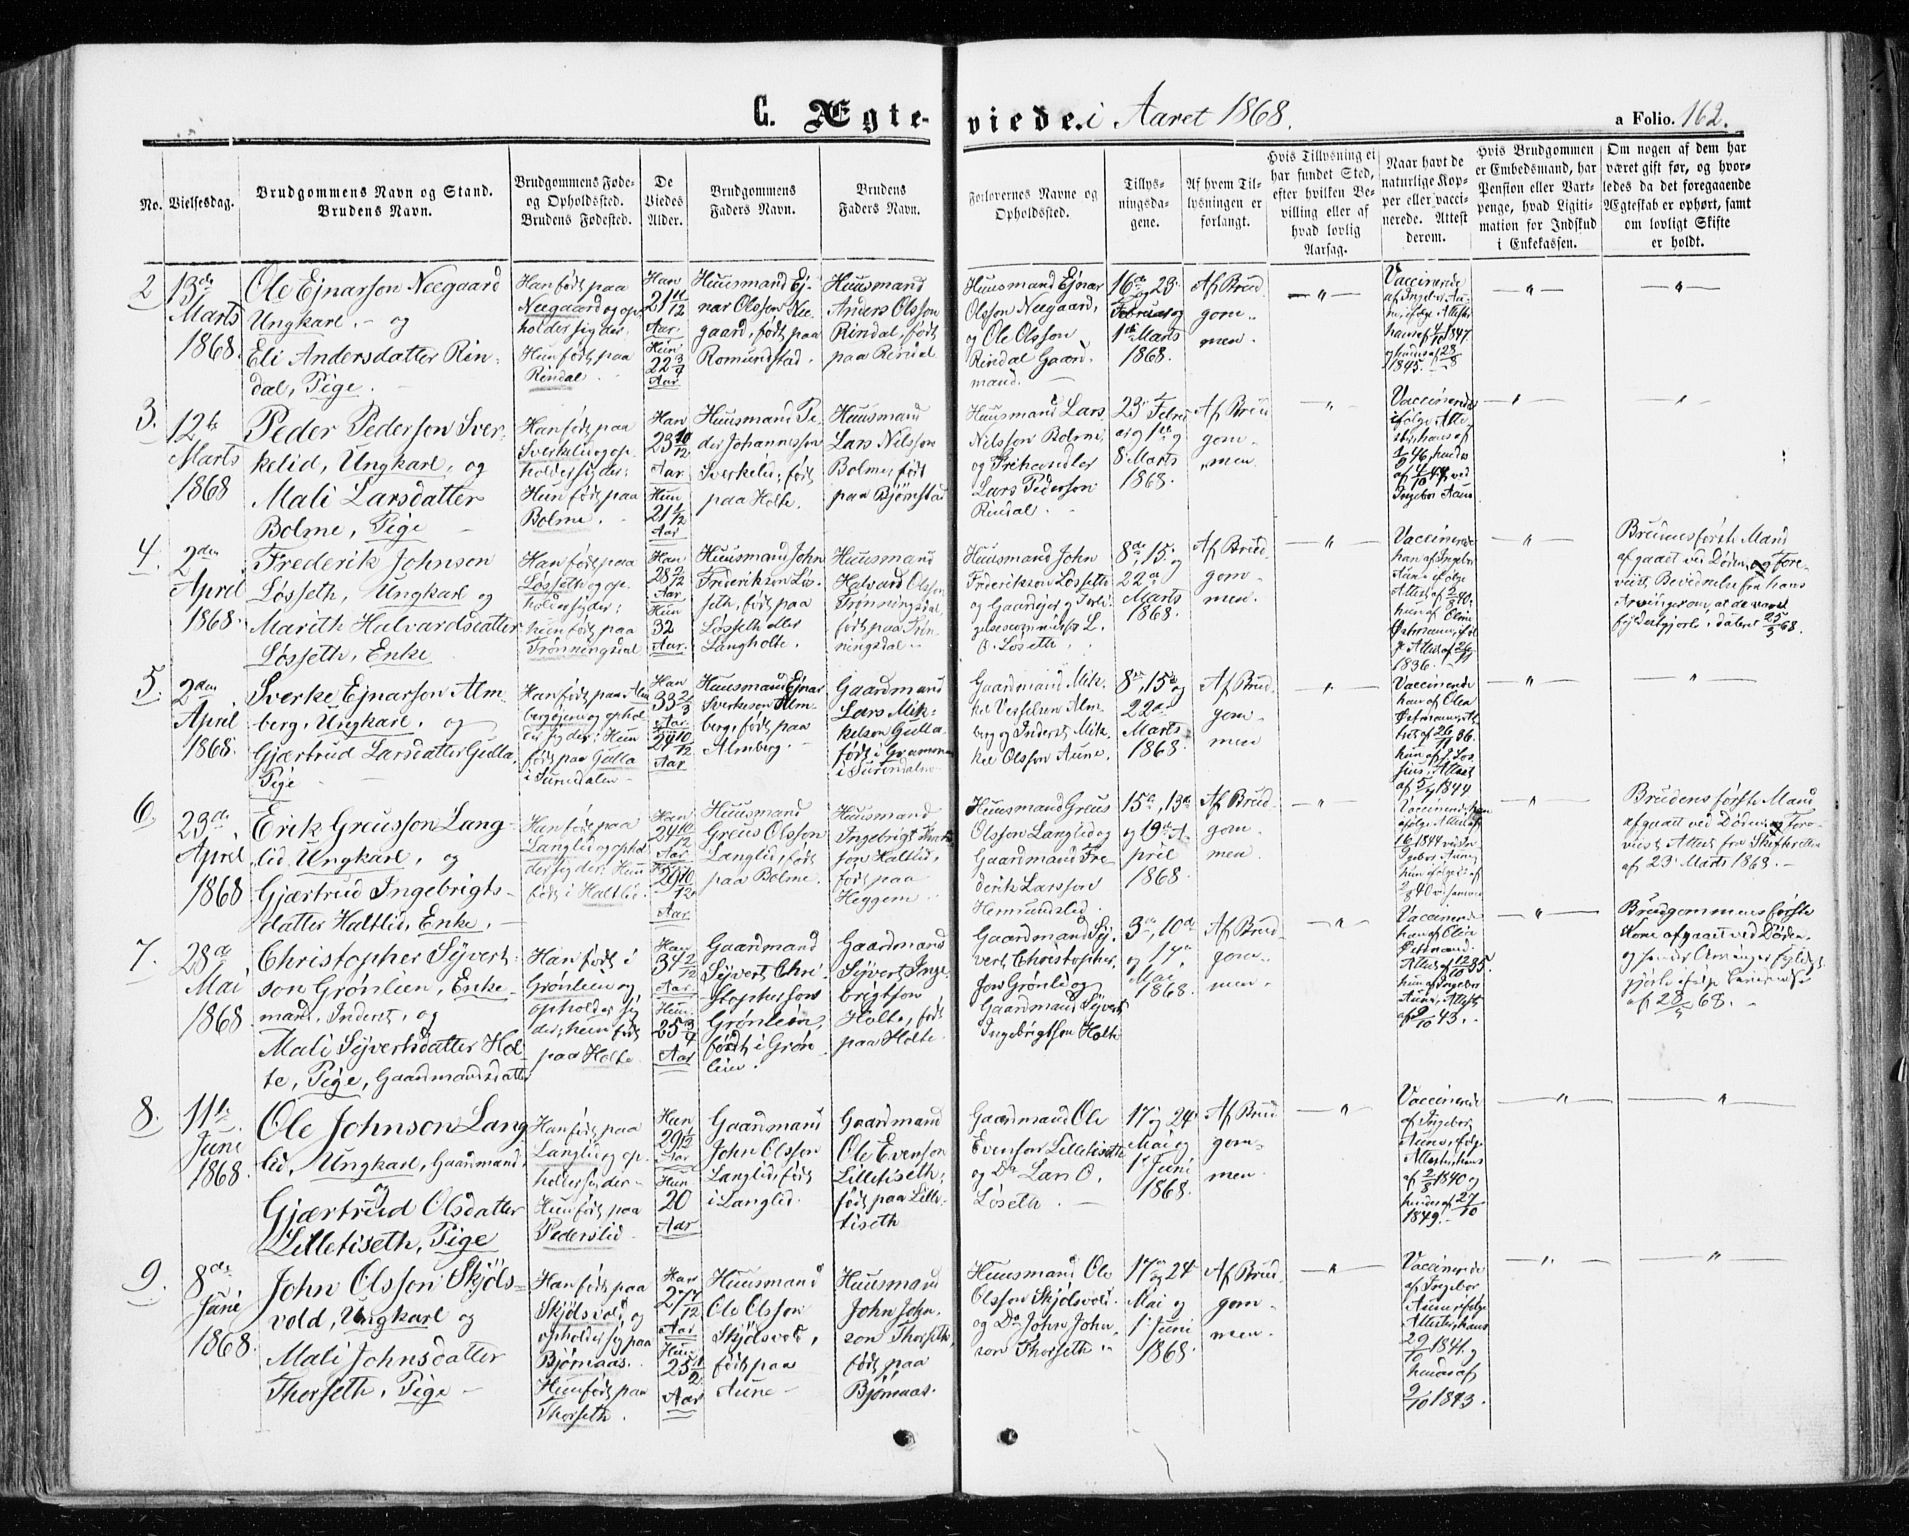 C. Ægte-viede. i Aaret 1868.
a Folio. 162.
No.
Vielsesdag.
Brudgommens Navn og Stand.
Brudens Navn.
Brudgommens Føde-
og Opholdssted.
Brudens Fødested.
De
Viedes
Alder.
Brudgommens
Faders Navn.
Brudens
Faders Navn.
Forlovernes Navne og
Opholdssted.
Tillys-
ningsda-
gene.
Af hvem Til-
lysningen er
forlangt.
Hvis Tillysning ei
har fundet Sted,
efter hvilken Be-
villing eller af
hvad lovlig
Aarsag.
Naar havt de
naturlige Kop-
per eller vacci-
nerede. Attest
derom.
Hvis Brudgommen
er Embedsmand, har
Pension eller Vart-
penge, hvad Ligiti-
mation for Indskud
i Enkekassen.
Om nogen af dem har
været gift før, og hvor-
ledes da det foregaaende
Ægteskab er ophørt, samt
om lovligt Skifte
er holdt.
2
13de
Marts
1868.
Ole Ejnarson Neegaard
Ungkarl. - og
Eli Andersdatter Rin-
dal, Pige. -
Han født paa
Neegaard og op-
holder sig der.
Hun født paa
Rindal.
Han
21 11/12
Aar.
Hun
22 3/4
Aar
Huusmand Ej-
nar Olsson Nee-
gaard, født paa
Romundstad.
Huusmand
Anders Olsson
Rindal, født
paa Rindal
Huusmand Ejnar
Olsson Neegaard,
og Ole Olsson
Rindal Gaard-
mand.
16de og 23
Februar og
1ste Marts
1868.
Af Brud-
gom-
men.
Vaccinerede
af Ingebor Au-
ne, ifølge Attest
hans af 4/10 1847
og hendes af 28/8
1845.
3.
12te
Marts
1868
Peder Pederson Sver-
kelid, Ungkarl, og
Mali Larsdatter
Bolme, Pige -
Han født paa
Sverkelid og op-
holder sig der;
Hun født paa
Bolme.
Han
23 10/12
Aar
Hun
21 1/12
Aar
Huusmand Pe-
der Johannesson
Sverkelid, født
paa Holte.
Huusmand
Lars Nilsson
Bolme, født
paa Bjørnstad
Huusmand Lars
Nilsson Bolme,
og Frihandler
Lars Pederson
Rindal.
23 Febru-
ar og 1ste og
8 Marts
1868.
Af Brud-
gom-
men.
Vaccinerede
ifølge Atte-
ster, hans af
46, hendes
af 47 ved
Ingebor Aune
4.
2den
April
1868.
Frederik Johnson
Løsseth, Ungkarl og
Marith Halvardsdatter
Løsseth, Enke
Han født paa
Løsseth og op-
holder sig der;
hun født paa
Trønningsdal
Han
28 2/12
Aar
Hun
32
Aar.
Huusmand John
Frederikson Løs-
seth, født paa
Løsseth eller
Langholte.
Huusmand
Halvard Olsson
Trønningsdal,
født paa Trøn-
ningsdal.
Huusmand John
Frederikson Løsseth
og Gaardejer og Forli-
gelsescommissær L.
O. Løseth.
8de, 15 og
22de
Marts
1868.
Af Brud-
gom-
men.
Vaccinerede
han af Ingebor
Aune ifølge
Attest af 2/8 40;
hun af Oline
Østmann, iføl-
ge Attest af
1836.
Brudens første Mand
afgaaet ved Døden, og Fore-
vist Bevidnelse fra hans
Arvinger om, at de vare
fyldestgjorte, dateret 25/3 68.
5.
2den
April
1868.
Sverke Ejnarson Alm-
berg, Ungkarl, og
Gjærtrud Larsdatter Gulla,
Pige
Han født paa Alm-
bergøien og ophol-
der sig der; Hun
født paa Gulla
i Surendalen
Han
33 2/3
Aar
Hun
24 10/12
Aar
Huusmand Ejnar
Sverkeson Alm-
berg, født paa
Almberg. -
Gaardmand
Lars Mik-
kelson Gulla
født i Grammen
i Surendalen
Gaardmand Mik-
kel Vesselsen Alm-
berg og Inderst Mik-
kel Olsson Aune.
8de, 15de og
22de
Marts
1868.
Af Brud-
gom-
men
Vaccinerede
han af Olia
Østmann, At-
test af 26/11 36
hun af P. Los-
sius, Attest
af 5/9 1844
6.
23de
April
1868
Erik Greusson Lang-
lid, Ungkarl, og
Gjærtrud Ingebrigts-
datter Haltlid, Enke. -
Han født paa
Langlid og ophol-
der sig der; Hun
født i Haltlid.
Han
24 10/12
Aar
Hun
29 10/12
Aar
Huusmand
Greus Olsson
Langlid, født
paa Bolme.
Huusmand
Ingebrigt
son Haltlid,
født paa
Heggem.
Huusmand Greus
Olsson Langlid og
Gaardmand Fre-
derik Larsson
Hermundslid
15de, 13de
og 19de A-
pril
1868.
Af Brud-
gom-
men.
Brudens første Mand
afgaaet ved Døden, og Fore-
vist Attest fra Skifteretten
af 23 Marts 1868.
7.
28de
Mai
1868
Christopher Syvert-
son Grønlien, Enke-
mand, Inderst, og
Mali Syvertsdatter Hol-
te, Pige, Gaardmandsdatter
Han født i
Grønlien og
opholder sig
der; hun født
paa Holte.
Han
34 2/12
Aar
Hun
25 3/4
Aar
Gaardmand
Syvert Chri-
stopherson
Grønlien,
født i Grøn-
lien.
Gaardmand
Syvert Inge-
brigtson
Holte, født
paa Holte.
Gaardmand Sy-
vert Christopher-
son Grønli og
Gaardmand Syvert
Ingebrigtson Holte
3de, 10de
og 17de
Mai
1868.
Af Brud-
gom-
men
Vaccinerede
han af Olia
Østmand.
Attest af 12/10 35.
hun af Ingebor
Aune, Attest
af 9/10 43.
Brudgommens første
Kone afgaaet ved Døden,
og hendes Arvinger fyldest-
gjorte ifølge
af 28/5 68.
8.
11te
Juni
1868.
Ole Johnson Lang-
lid, Ungkarl, Gaardmand,
og
Gjærtrud Olsdatter
Lilletiseth, Pige
Han født paa
Langlid og op-
holder sig der -
Hun født paa
Pederslid.
Han
29 1/2
Aar
Hun
20
Aar
Gaardmand
John Olsson
Langlid, født
i Langlid.
Gaardmand
Ole Evenson
Lilletiseth,
født paa Lille-
tiseth
Gaardmand Ole
Evenson Lilletiseth
og Do Lars O.
Løseth. -
17 og 24
Mai og
1 Juni
1868.
Af Brud-
gom-
men
Vaccinerede
af Ingebor
Aune, ifølge
Attester, hans
af 2/8 1840 og
hendes af 27/10
1849.
9.
8de
Juni
1868.
John Olsson Skjøls-
vold, Ungkarl og
Mali Johnsdatter
Thorseth, Pige -
Han født paa
Skjølsvold, og
opholder sig paa
Bjørnaas.
Hun født paa
Thorseth.
Han
27 7/12
Aar
Hun
25 1/2
Aar
Huusmand
Ole Olsson
Skjølsvold,
født paa
Aune -
Huusmand
John John-
son Thorseth,
født paa
Bjørnaas.
Huusmand Ole
Olsson Skjølsvold.
og Do John John-
son Thorseth
17de og 24
Mai og
1 Juni
1868.
Af Brud-
gom-
men.
Vaccinerede
af Ingebor
Aune ifølge
Attester, hans
29/10 1841 og
hendes af
9/10 1843.